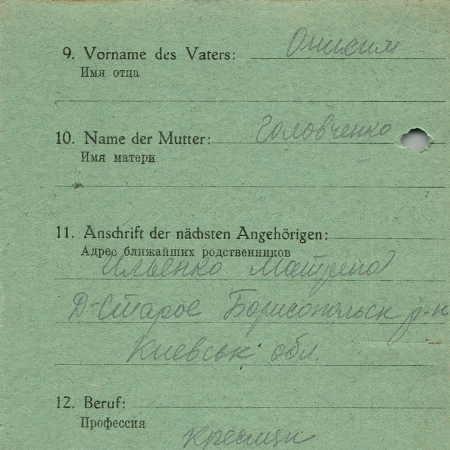 9. Vorname des Vaters: Онисим
Имя отца
10. Name der Mutter: Головченко
Имя матери
11. Anschrift der nächsten Angehörigen:
Адрес ближайших родственников
Ильенко Матрена
Д-Старое Борисопольск р-н
Киевськ обл.
12. Beruf:
Профессия
Кресция